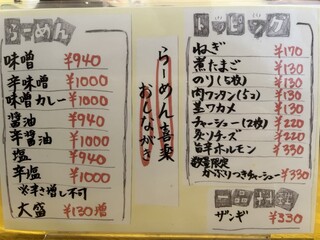 らーめん
味噌 ¥940
辛味噌 ¥1000
味噌カレー ¥1000
醤油 ¥940
辛醤油 ¥1000
塩 ¥940
辛塩 ¥1000
※辛さ増し不可
大盛 ¥130増
らーめん喜楽
おしながき
トッピング
ねぎ ¥170
煮たまご ¥130
のり(5枚) ¥130
肉ワンタン(5コ) ¥130
茎ワカメ ¥130
チャーシュー(2枚) ¥220
炙りチーズ ¥220
旨辛ホルモン ¥330
数量限定
かぶりつきチャーシュー ¥330
一品料理
ザンギ ¥330